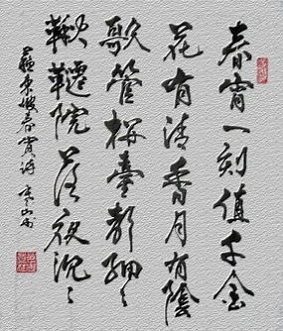 春宵一刻值千金
花有清香月有陰
歌管楼臺聲細々
鞦韆院落夜沉々
蘇東坡春宵詩